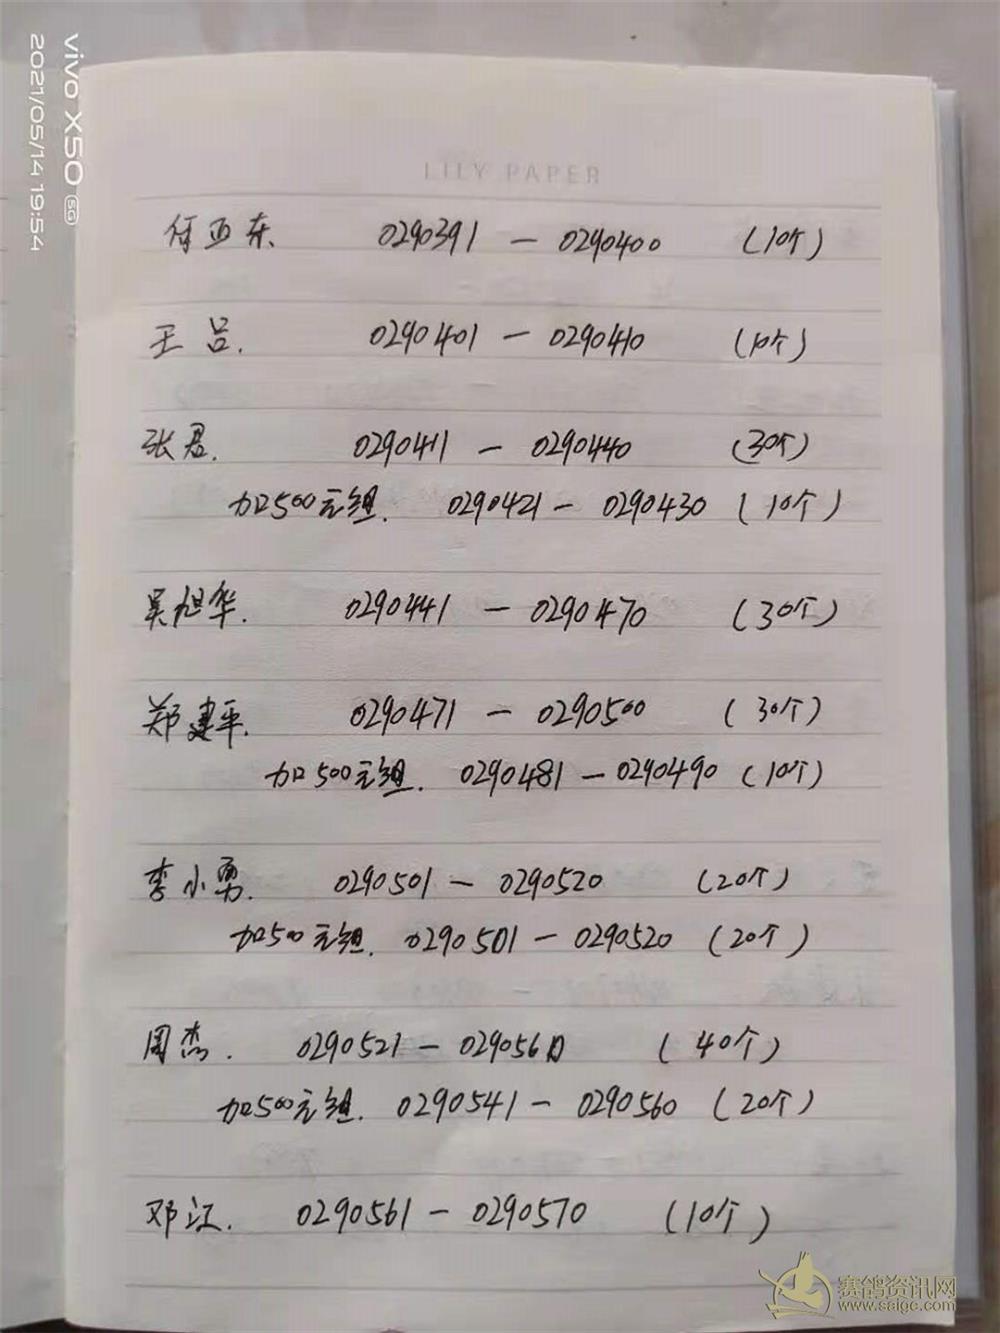 vivo X50 5G
2021/05/14 19:54
LILY PAPER
何亚东. 0290391 — 0290400 (10个)
王吕. 0290401 — 0290410 (10个)
张君. 0290411 — 0290440 (30个)
加500元组. 0290421 — 0290430 (10个)
吴旭华. 0290441 — 0290470 (30个)
郑建平. 0290471 — 0290500 (30个)
加500元组. 0290481 — 0290490 (10个)
李小勇. 0290501 — 0290520 (20个)
加500元组. 0290501 — 0290520 (20个)
周杰. 0290521 — 0290560 (40个)
加500元组. 0290541 — 0290560 (20个)
邓江. 0290561 — 0290570 (10个)
赛鸽资讯网
www.saige.com